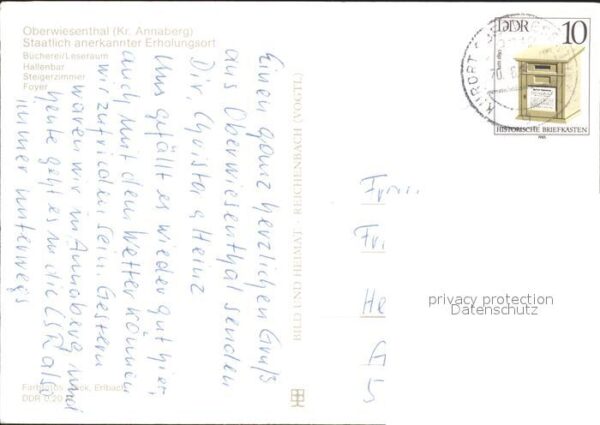 Oberwiesenthal (Kr. Annaberg)
Staatlich anerkannter Erholungsort
Bücherei/Leseraum
Hallenbar
Steigerzimmer
Foyer
Einen ganz herzlichen Gruß
aus Oberwiesenthal senden
Dir, Christa & Heinz
Uns gefällt es wieder gut hier,
auch mit dem Wetter können
wir zufrieden sein. Gestern
waren wir in Annaberg und
heute geht es in die ČSR also
immer unterwegs
Erlbach
DDR 0,20
BILD UND HEIMAT · REICHENBACH (VOGTL)
DDR 10
KURORT
HISTORISCHE BRIEFKÄSTEN
1985
Fr
He
5
privacy protection
Datenschutz